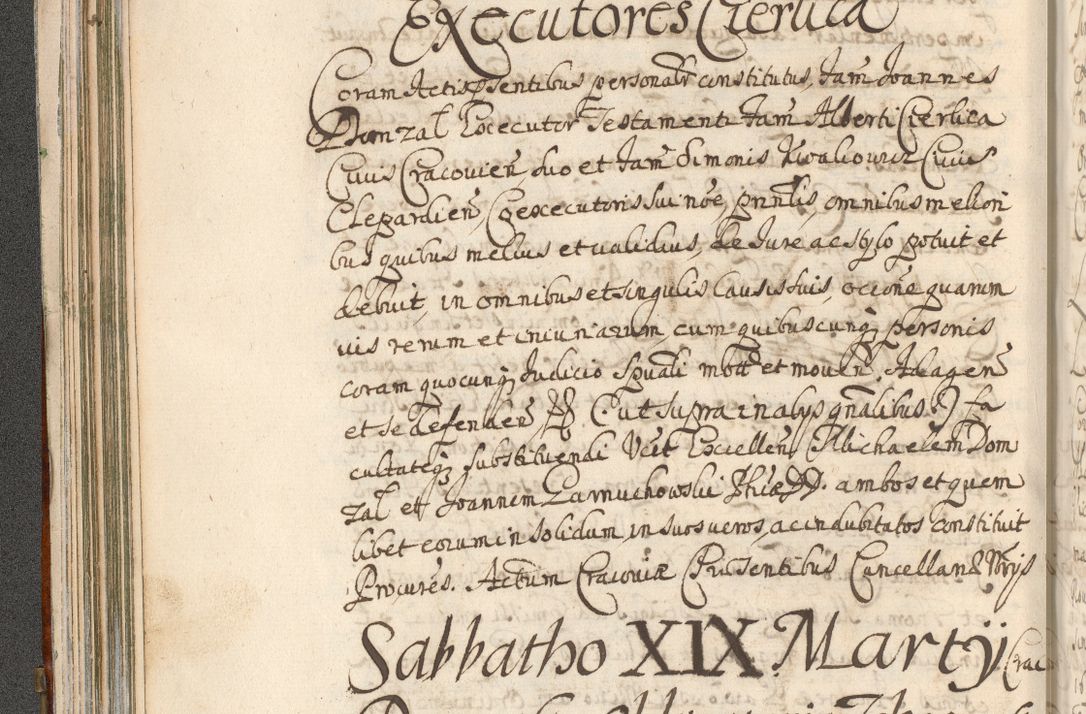 Executores Czerlica
Coram Actis pñsentibus personalr constitutus, Fam Joannes
Domzal Excecutor Testamenti Fam Alberti Czerlica
Civis Cracovień suo et Fam Simonis Kwaliowicz Civis
Clepardień Coexcecutoris sui nõe, pñntis, omnibus meliori
bus quibus melius et validius, de Jure ac stylo potuit et
debuit, in omnibus et singulis Causis suis, occiõne quarum
vis rerum et iniuriarum, cum quibuscunq; personis
coram quocunq; Judicio Spuali mott et moveñ. Ad agenđ
et se defendenđ (ut supra in alys gñalibus) fa
cultateq; substituendi Vcit Excellen Michaelem Dom
zal et Joannem Zarnuchowski Phiæ DD. ambos et quem
libet eorum in solidum, in suos veros, ac indubitatos constituit
Procures. Actum Cracoviæ Præsentibus Cancellariæ Nrys
Sabbatho XIX Martÿ Crac